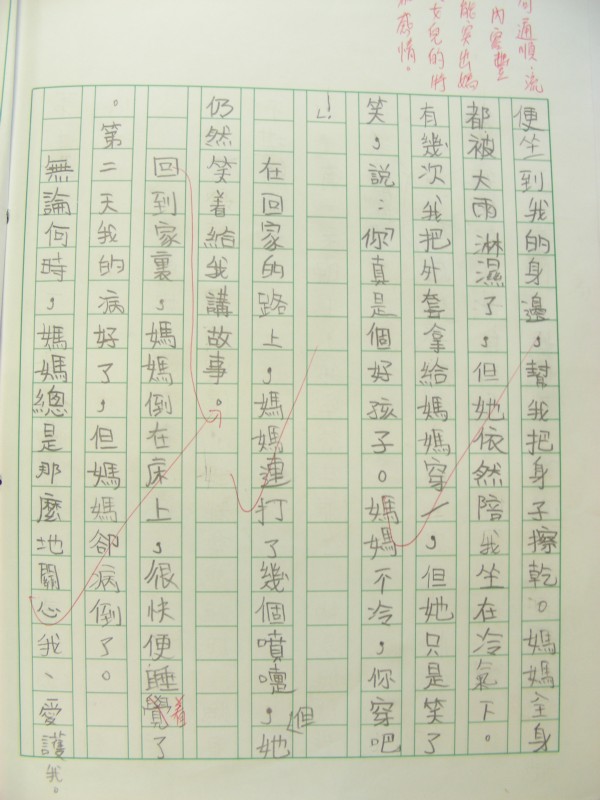 通順，流
內容豐
能突出媽
女兒的
感情。
便坐到我的身邊，幫我把身子擦乾。媽媽全身
都被大雨淋濕了，但她依然陪我坐在冷氣下。
有幾次我把外套拿給媽媽穿一，但她只是笑了
笑，說：「你真是個好孩子。媽媽不冷，你穿吧
！」
在回家的路上，媽媽連打了幾個噴嚏，但她
仍然笑着給我講故事。
回到家裏，媽媽倒在床上，很快便睡覺着了
。第二天我的病好了，但媽媽卻病倒了。
無論何時，媽媽總是那麼地關心我、愛護我。